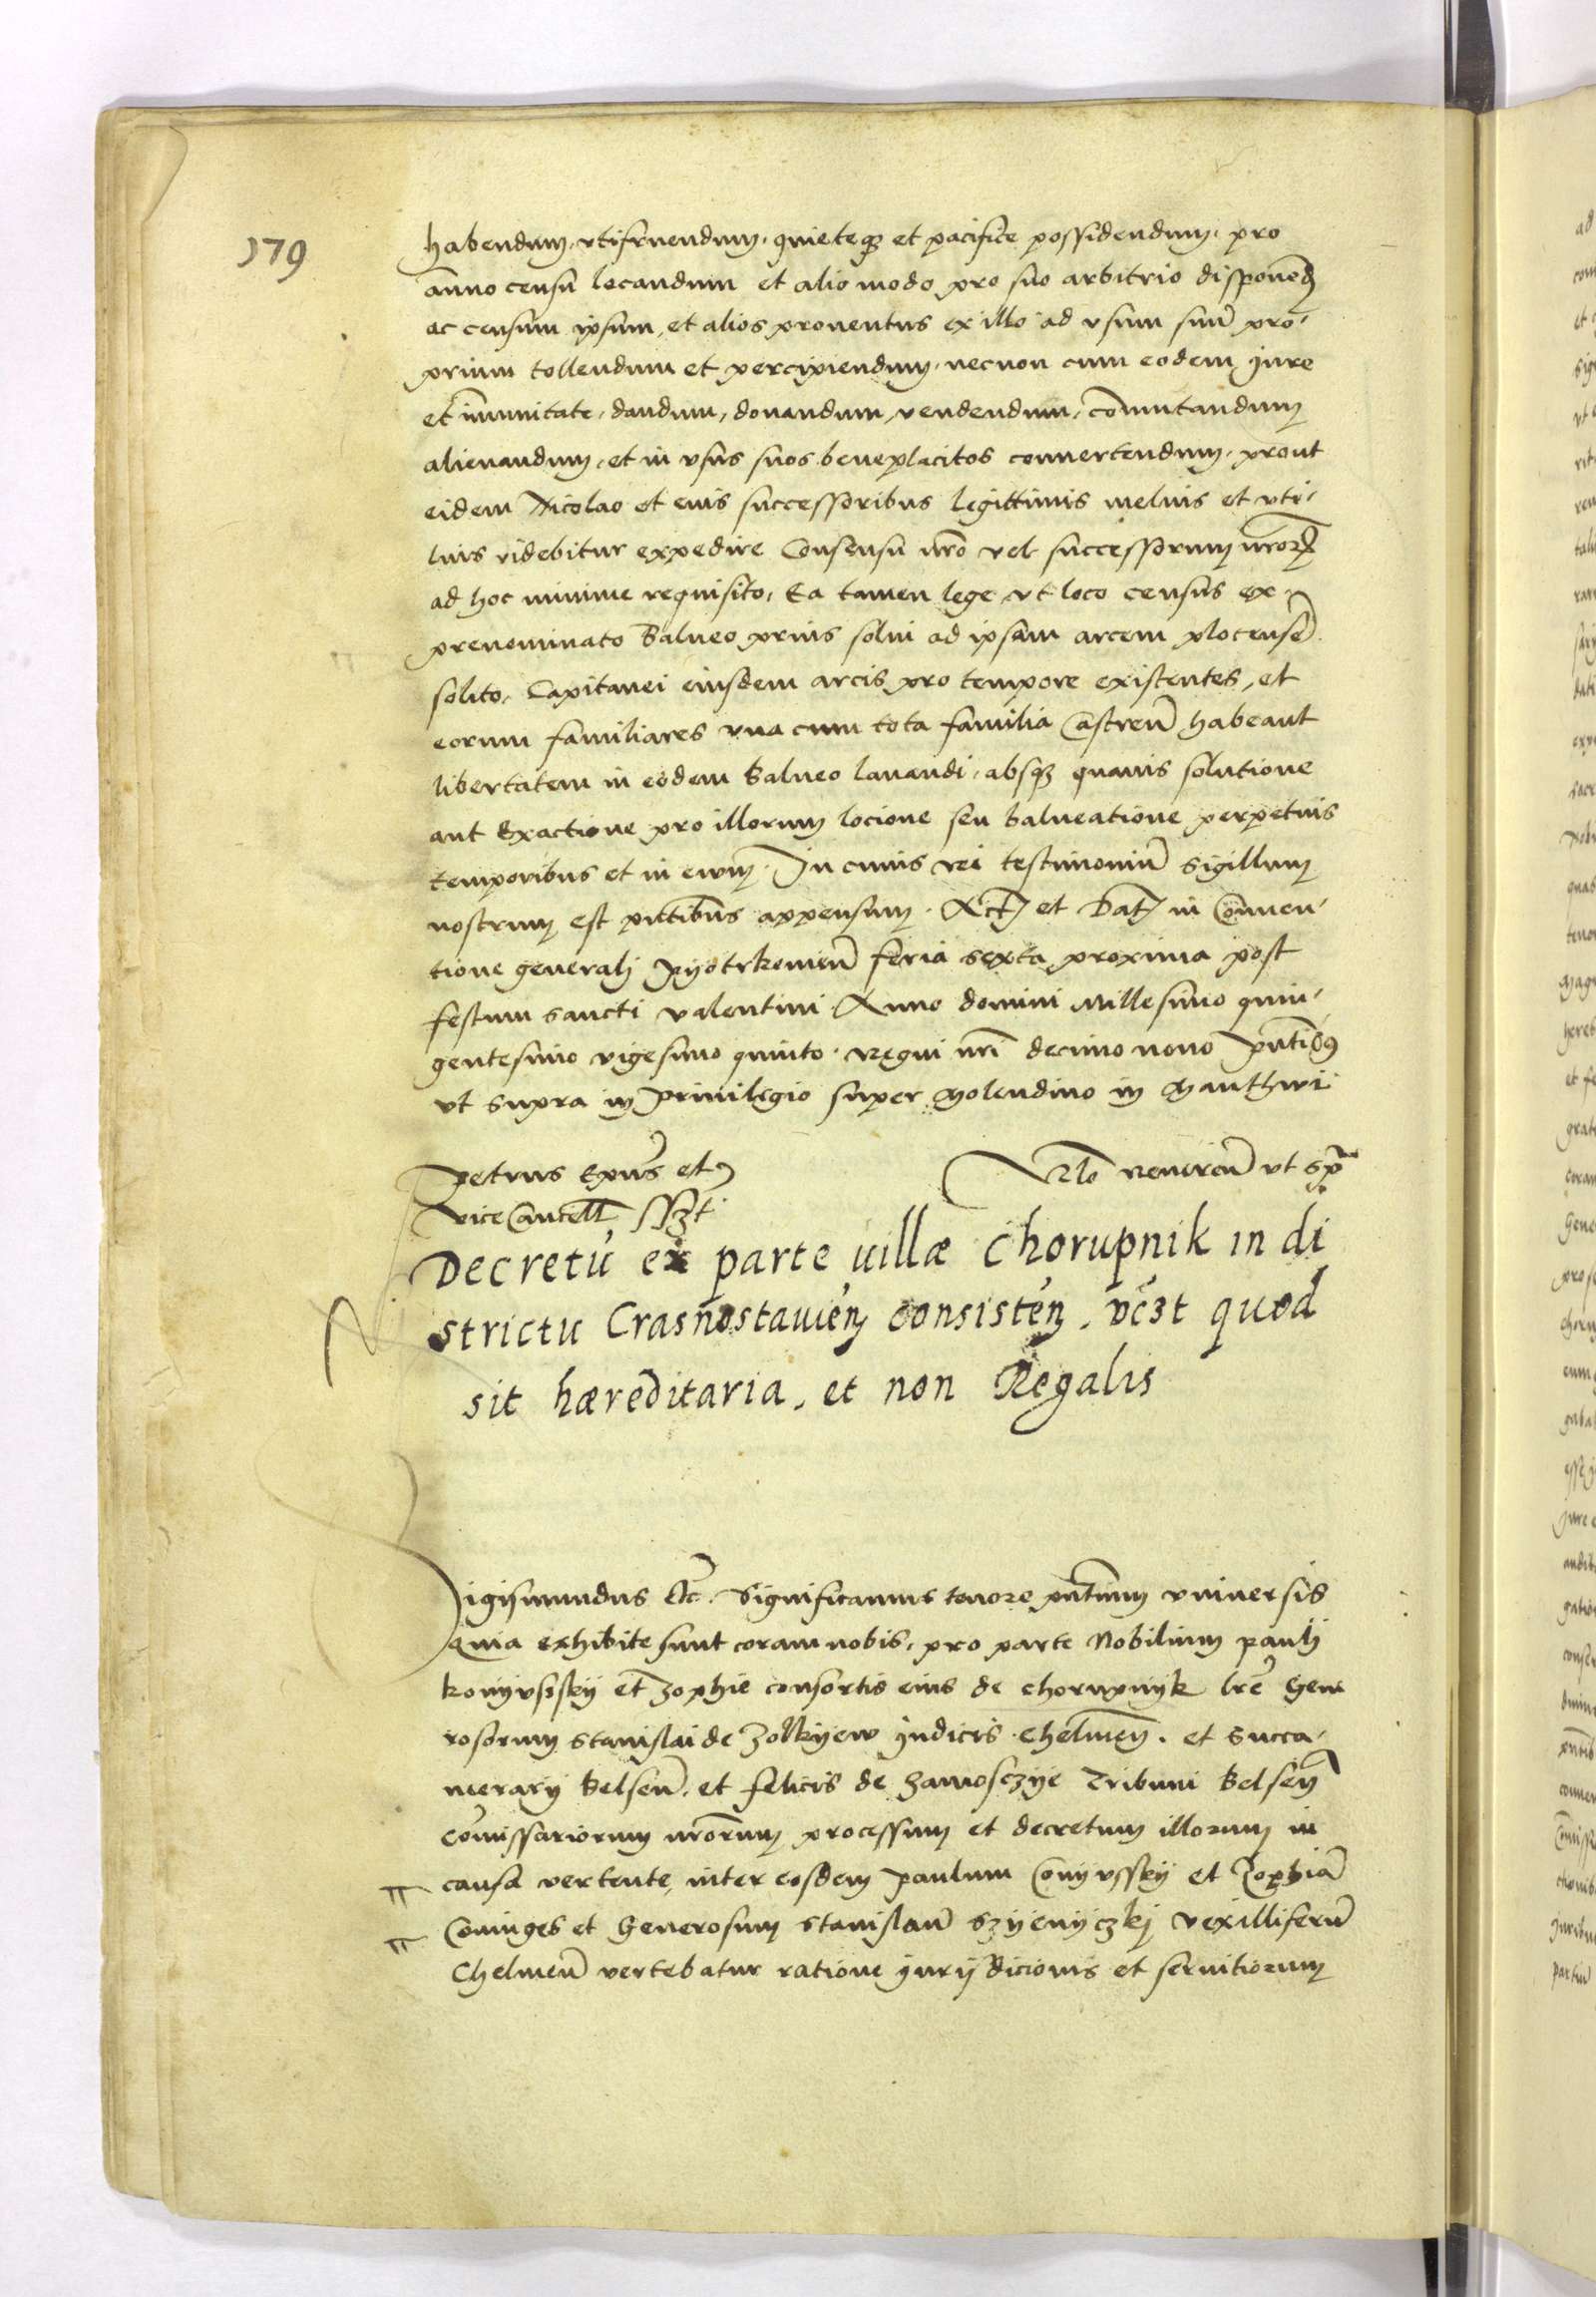 179
habendum, vtifruendum, quieteq₃ et pacifice possidendum, pro
anno censu locandum et alio modo pro suo arbitrio disponend̄
ac censum ipsum, et alios prouentus ex illo ad vsum suū pro-
prium tollendum et percipiendum, necnon cum eodem jure
et im̄unitate, dandum, donandum, vendendum, com̄utandum
alienandum, et in vsus suos beneplacitos conuertendum, prout
eidem Nicolao et eius successoribus legittimis melius et vti-
lius videbitur expedire Consensu nr̄o vel successorum nr̄oꝝ
ad hoc minime requisito, Ea tamen lege vt loco census ex
prenominato Balneo prius solui ad ipsam arcem plocensē
solito, Capitanei eiusdem arcis pro tempore existentes, et
eorum familiares vna cum tota familia Castren̄ habeant
libertatem in eodem Balneo lauandi, absq₃ quauis solutione
aut Exactione pro illorum locione seu balneatione perpetuis
temporibus et in ewm. In cuius rei testimoniū sigillum
nostrum est pn̄tibus appensum. Act̄ et Dat̄ in Conuen-
tione generalj Pyotrkouien̄ feria sexta proxima post
festum sancti valentini Anno domini Millesimo quin-
gentesimo vigesimo quinto. Regni nr̄i decimo nono pn̄tib9
vt supra in Priuilegio super Molendino in Manthwi
Petrus Epūs et Rlō reueren̄ vt sp̄
vice Cancell̄ sszt
Decretū ex parte uillæ Chorupnik in di
strictu Crasnostauień consistéń. vc̄zt quod
sit hæreditaria, et non Regalis
Sigismundus Etc̄. Significamus tenore pn̄tium vniuersis
Quia exhibite sunt coram nobis, pro parte Nobilium paulj
konyvsskij et Zophie consortis eius de chorupnyk lrē Gene
rosorum Stanislai de Zolkyew Judicis chelmen̄. et Succa-
merarij Belsen̄. et felicis de Zamosczye Tribuni Belsen̄
Com̄issariorum nr̄orum processum et decretum illorum in
causa vertente, inter eosdem Paulum Conyvsskij et Zophiā
Coniuges et Generosum Stanislaū Szyenyczkj vexilliferū
Chelmen̄ vertebatur ratione jurijdicionis et seruitiorum